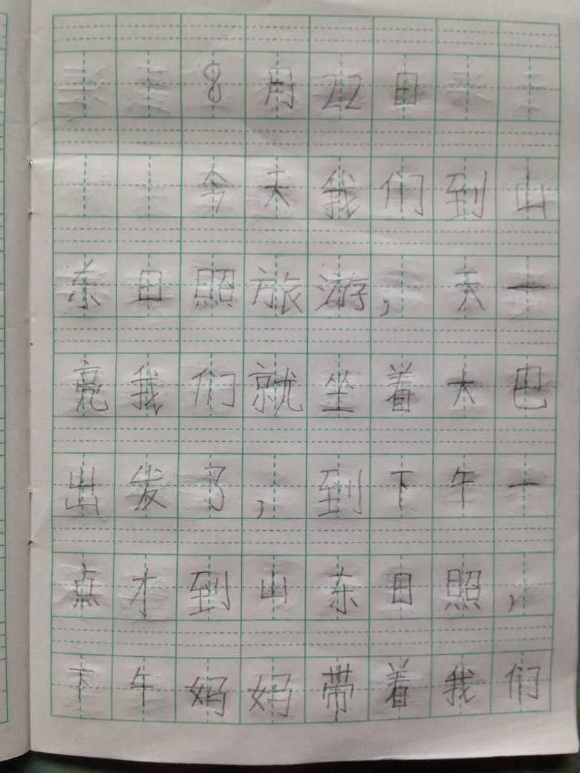 8月22日
今天我们到山
东日照旅游，天一
亮我们就坐着大巴
出发了，到下午一
点才到山东日照，
下午妈妈带着我们